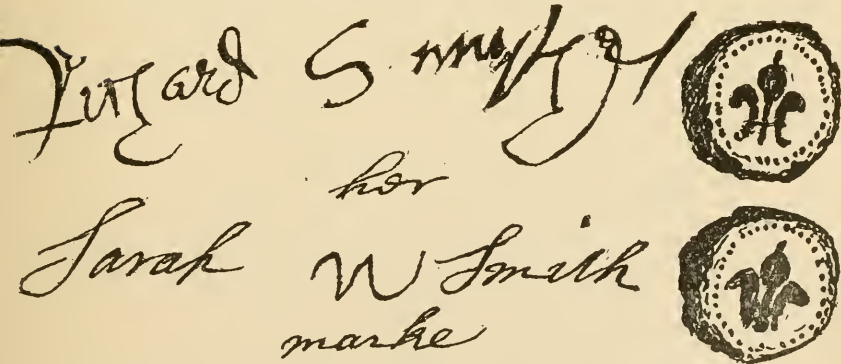 Richard Smyth
her
Sarah W Smith
marke